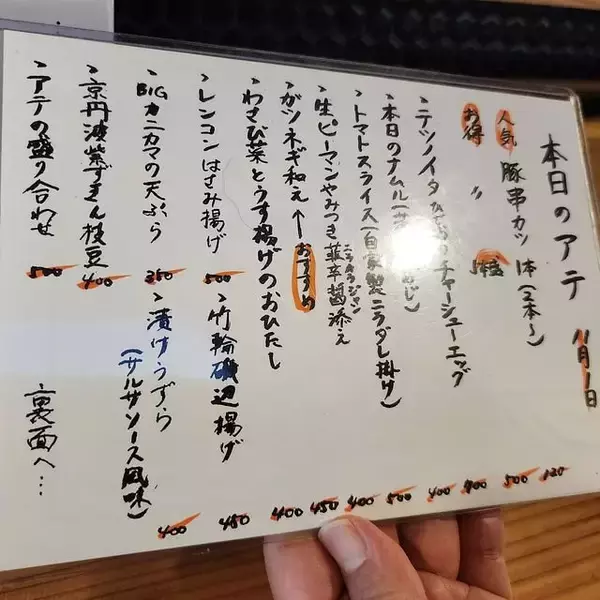 本日のアテ 11月1日
人気 豚串カツ 1体(2本〜) 120
お得 〃 5種 500
テツノイタ チャーシューエッグ
本日のナムル
トマトスライス(自家製ニラダレ掛け)
生ピーマンやみつき韮辛醤添え
ニラカラジャン
ガツネギ和え←おすすめ
わさび菜とうす揚げのおひたし
レンコンはさみ揚げ 500
・竹輪磯辺揚げ
BIGカニカマの天ぷら 350
・漬けうずら
(サルサソース風味)
・京丹波紫ずきん枝豆 400
・アテの盛り合わせ 500
裏面へ…
400 450 400 450 400 500 400